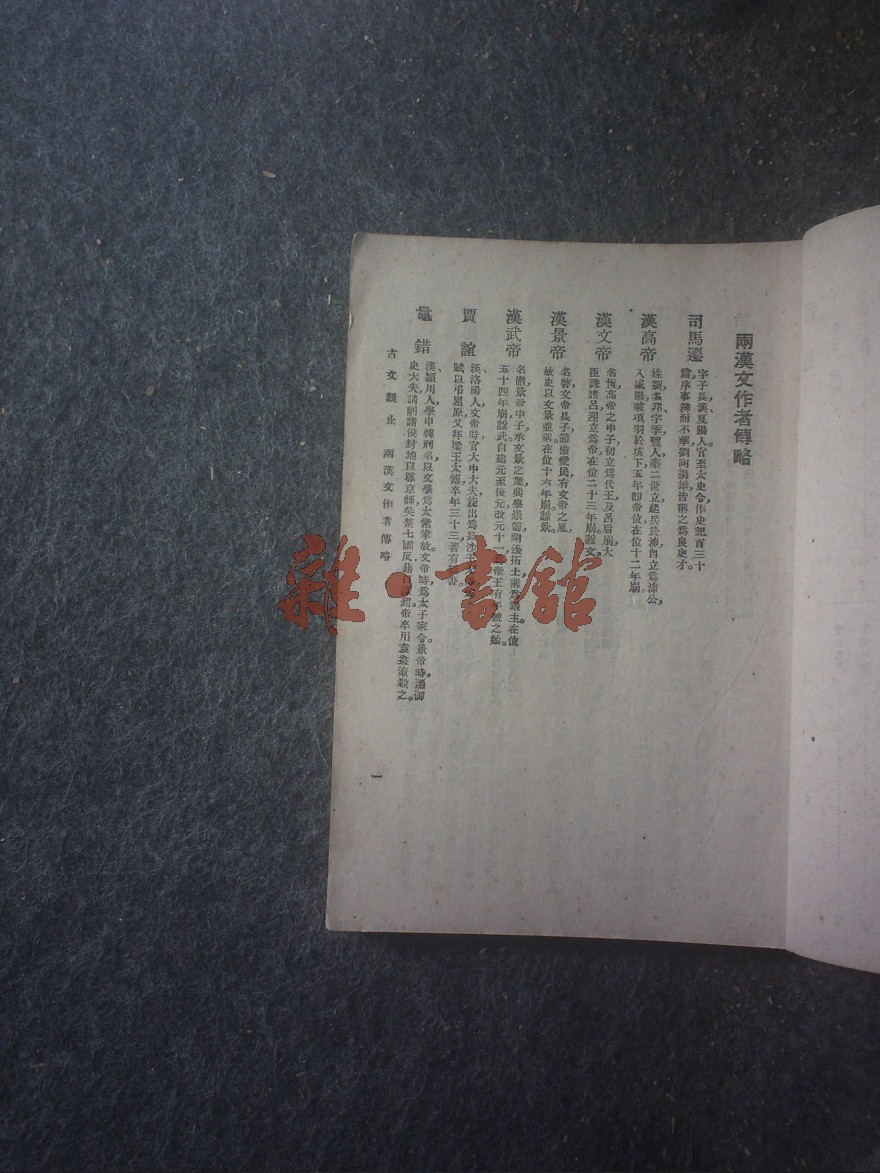 兩漢文作者傳略
司馬遷 字子長、漢夏陽人。官至太史令、作史記百三十
篇、序事辨而不華、劉向揚雄、皆稱之爲良史才。
漢高帝 姓劉、名邦、字季、豐人、秦二世立、起兵於沛、自立爲沛公、
入咸陽、破項羽於垓下、五年即帝位、在位十二年崩。
漢文帝 名恆、高帝之中子、初立爲代王、及呂后崩、大
臣誅諸呂、迎立爲帝、在位二十三年崩、諡文
漢景帝 名啓、文帝長子、節儉愛民、有文帝之風、
故史以文景並稱、在位十六年崩、諡景。
漢武帝 名徹、景帝中子、承文景之業、興學崇儒、開邊拓土、稱爲雄主、在位
五十四年崩、諡武、自建元至後元改元十一 帝王有年號之始。
賈誼 漢洛陽人、文帝時、官大中大夫、旋出爲長沙王
賦以弔屈原、又拜梁王太傅、卒年三十三、著有 書
鼂錯 漢潁川人、學申韓刑名、以文學爲太常掌故、文帝時、爲太子家令、景帝時、遷御
史大夫、請削諸侯封地、以尊京師、吳楚七國反、 帝卒用袁盎策殺之。
古文觀止 兩漢文作者傳略
一
雜·書館